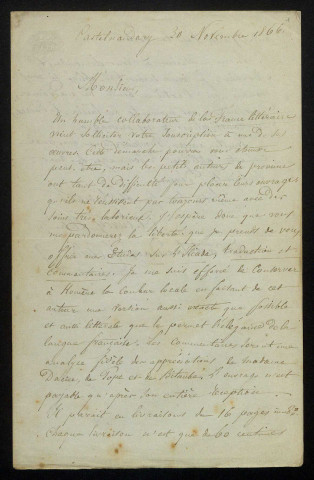 Castelnaudary 20 Novembre 1866
Monsieur,
Un humble collaborateur de la France littéraire
vient solliciter votre souscription à une de ses
œuvres. Cette démarche pourra vous étonner
peut être, mais les petits auteurs de province
ont tant de difficultés pour placer leurs ouvrages
qu'ils ne réussissent pas toujours même avec des
soins très laborieux. J'espère donc que vous
me pardonnerez la liberté que je prends de vous
offrir mes Études sur l'Iliade, traduction et
commentaires. Je me suis efforcé de conserver
à Homère la couleur locale en faisant de cet
auteur une version aussi exacte que possible
et aussi littérale que le permet l'élégance de la
langue française. Les commentaires sont une
analyse fidèle des appréciations de madame
Dacier, de Pope et de Bitaubé. L'ouvrage n'est
payable qu'après son entière réception.
Il paraît en livraisons de 16 pages in 8°.
chaque livraison n'est que de 60 centimes